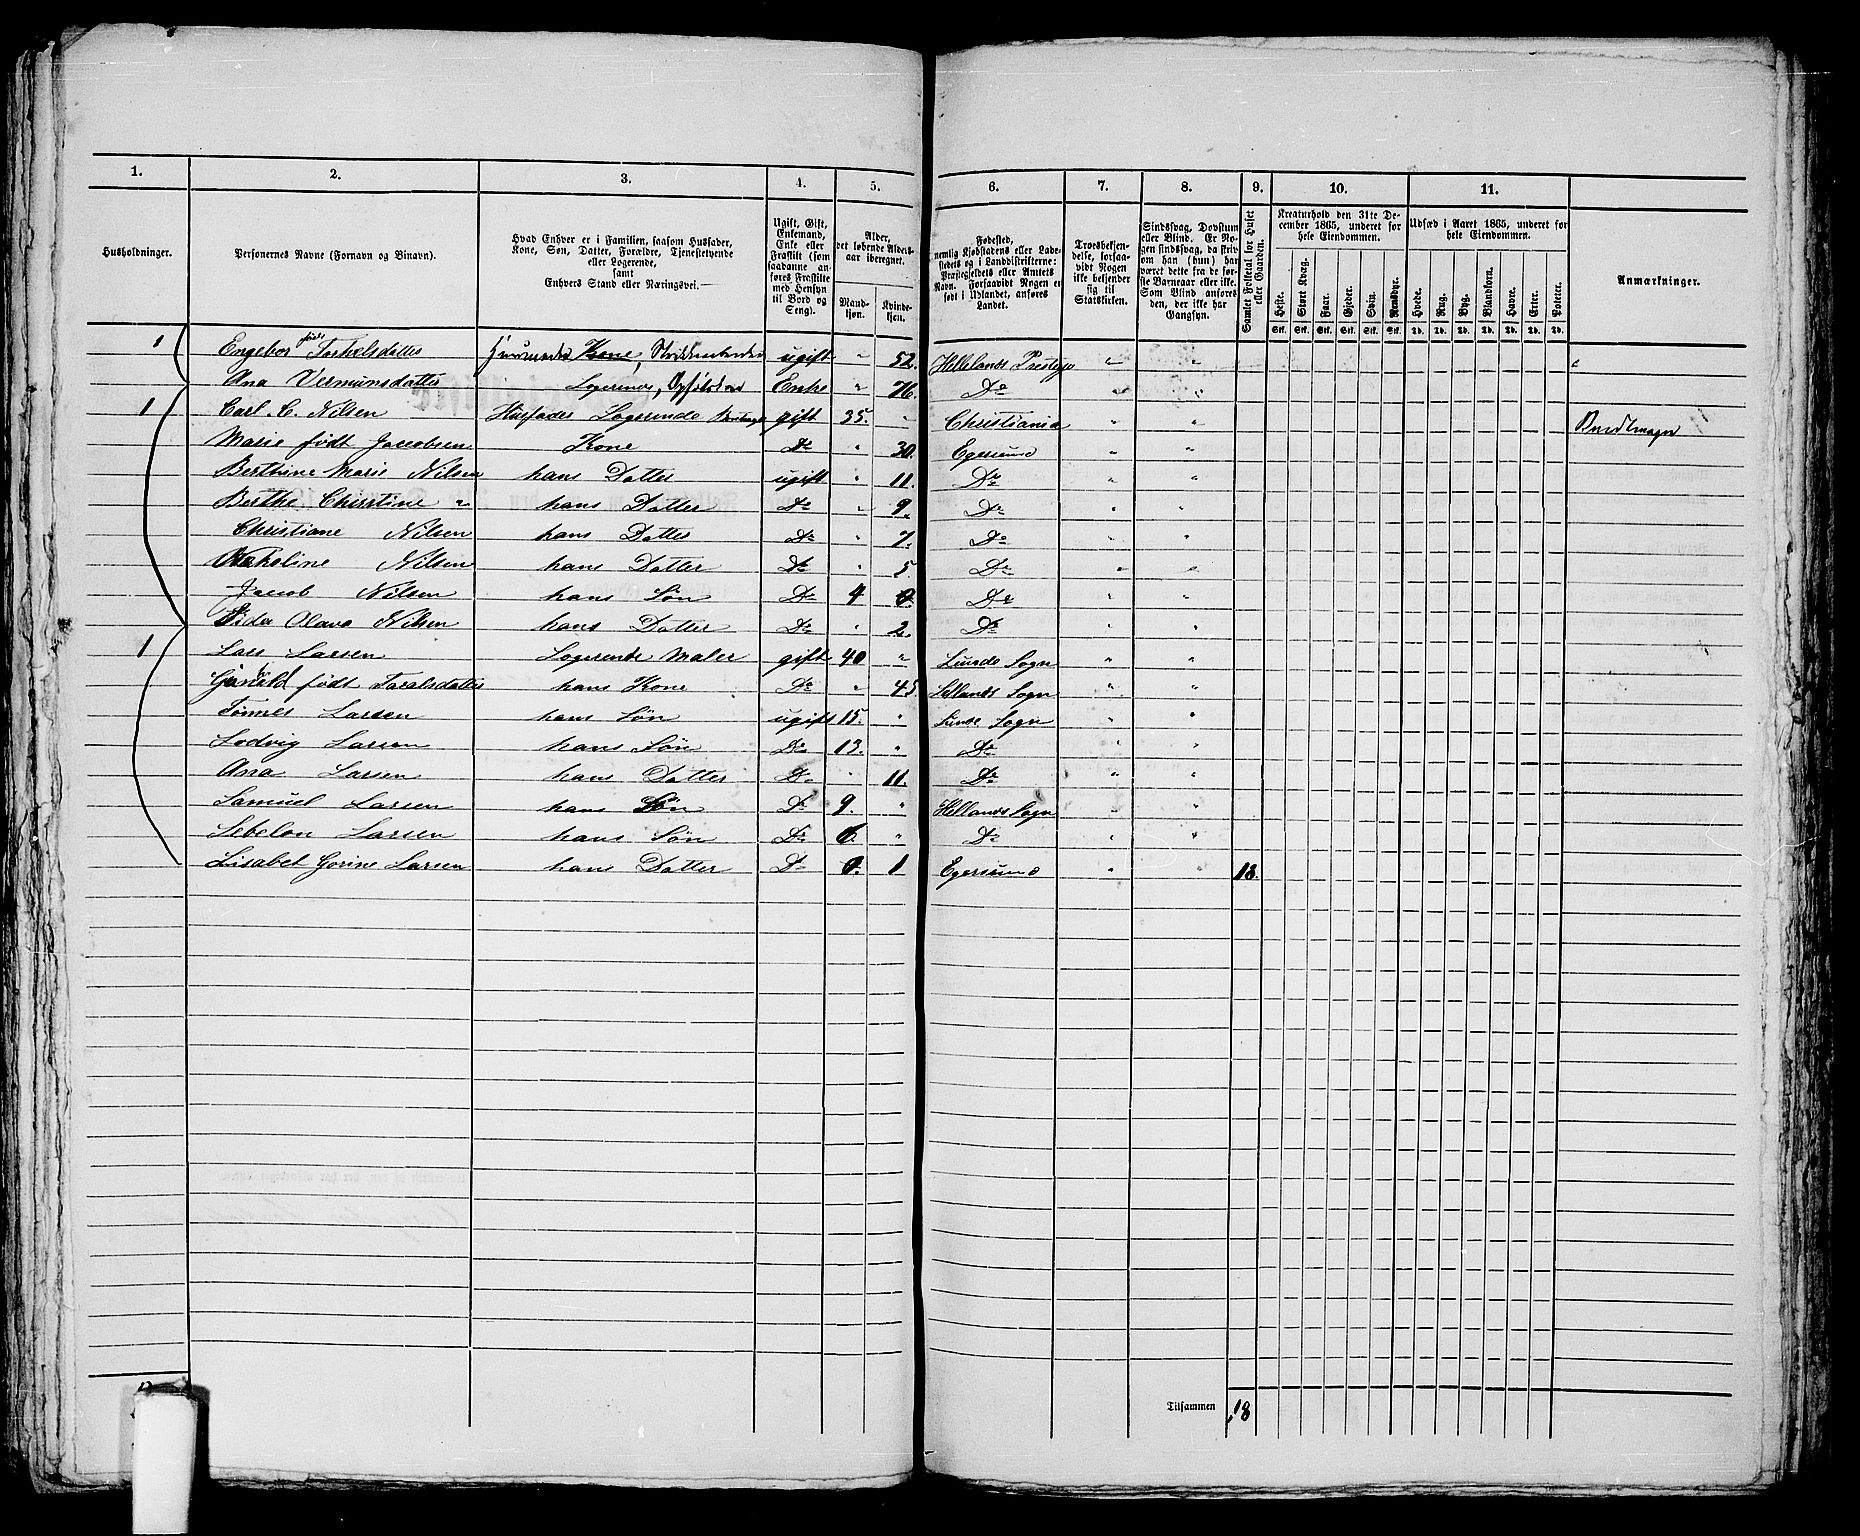 1. 2. 3. 4. 5. 6. 7. 8. 9. 10. 11.
Husholdninger.
Personernes Navne (Fornavn og Binavn).
Hvad Enhver er i Familien, saasom Husfader, Kone, Søn, Datter, Forældre, Tjenestetyende eller Logerende, samt Enhvers Stand eller Næringsvei.—
Ugift, Gift, Enkemand, Enke eller Fraskilt (som saadanne anføres Fraskilte med Hensyn til Bord og Seng).
Alder, det løbende Aldersaar iberegnet.
Mandkjøn. Kvindekjøn.
Fødested, nemlig Kjøbstadens eller Ladestedets og i Landdistrikterne: Præstegjeldets eller Amtets Navn. Forsaavidt Nogen er født i Udlandet, anføres Landet.
Troesbekjendelse, forsaavidt Nogen ikke bekjender sig til Statskirken.
Sindssvag, Døvstum eller Blind. Er Nogen sindssvag, da skrives om han (hun) har været dette fra de første Barneaar eller ikke. Som Blind anføres den, der ikke har Gangsyn.
Samlet Folketal for Huset eller Gaarden.
Kreaturhold den 31te December 1865, underet for hele Eiendommen.
Heste. Stort Kvæg. Faar. Gjeder. Svin. Rensdyr.
Stk. Stk. Stk. Stk. Stk. Stk.
Udsæd i Aaret 1865, underet for hele Eiendommen.
Hvede. Rug. Byg. Blandkorn. Havre. Erter. Poteter.
Td. Td. Td. Td. Td. Td. Td.
Anmærkninger.
1 Engebor født Torkelsdatter Kone, ugift " 52. Hellelands Prestegj " " "
Ana Vermunsdatter Logerende, Enke " 76. Do " "
1 Carl C. Nilsen Husfader Logerende gift 35. " Christiania " "
Marie født Jacobsen Kone Do " 30. Egersund " "
Berthine Marie Nilsen hans Datter ugift " 11. Do " "
Berthe Christine " hans Datter Do " 9. Do " "
Christiane Nilsen hans Datter Do " 7. Do " "
Nilsen hans Datter Do " 5. Do " "
Jacob Nilsen hans Søn Do 4 0. Do " "
Olava Nilsen hans Datter Do " 2. Do " "
1 Lars Larsen Logerende Maler gift 40 " Lunds Sogn " "
Gunild født hans Kone Do " 45 Sogn " "
Tønnes Larsen hans Søn ugift 15. " Lunde Sogn " "
Lodvig Larsen hans Søn Do 13. " Do " "
Ana Larsen hans Datter Do " 11. Do " "
Samuel Larsen hans Søn Do 9. " Hellands Sogn " "
Sebelon Larsen hans Søn Do 6. " Do " "
Lisabet Gorine Larsen hans Datter Do 0. 1 Egersund " " 18.
Tilsammen 18